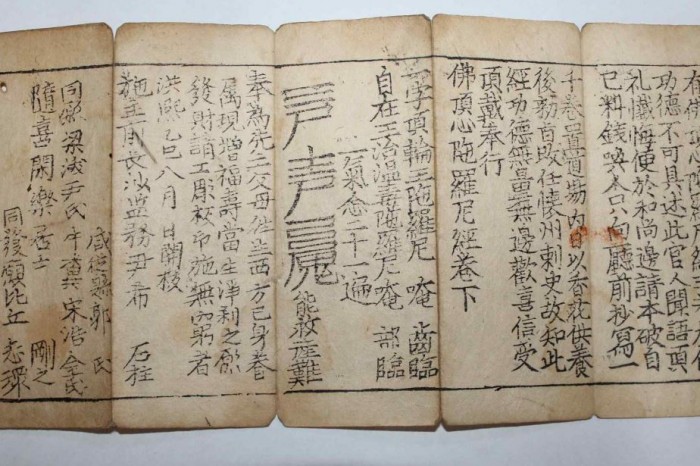 功德不可具述此官人聞語頂
礼懺悔便於和尚邊請本破自
己料錢喚人只向廳前抄寫一
千卷置道場內日以香花供養
後勅官改任懷州刺史故知此
經功德無量無邊歡喜信受
頂戴奉行
佛頂心陀羅尼經卷下
一字頂輪王陀羅尼 唵 齒臨
自在王治溫毒陀羅尼唵 部臨
一氣念二十一遍
能救產難
奉爲先亡父母往生西方己身眷
属現增福壽當生淨利之願
發財請工彫板印施無窮者
洪熙乙巳八月日開板
施主前長沙監務尹希 石柱
咸從縣郭氏
同樂梁淑尹氏 宋浩金氏
隨喜閑樂居士 剛之
同發願比丘 志環